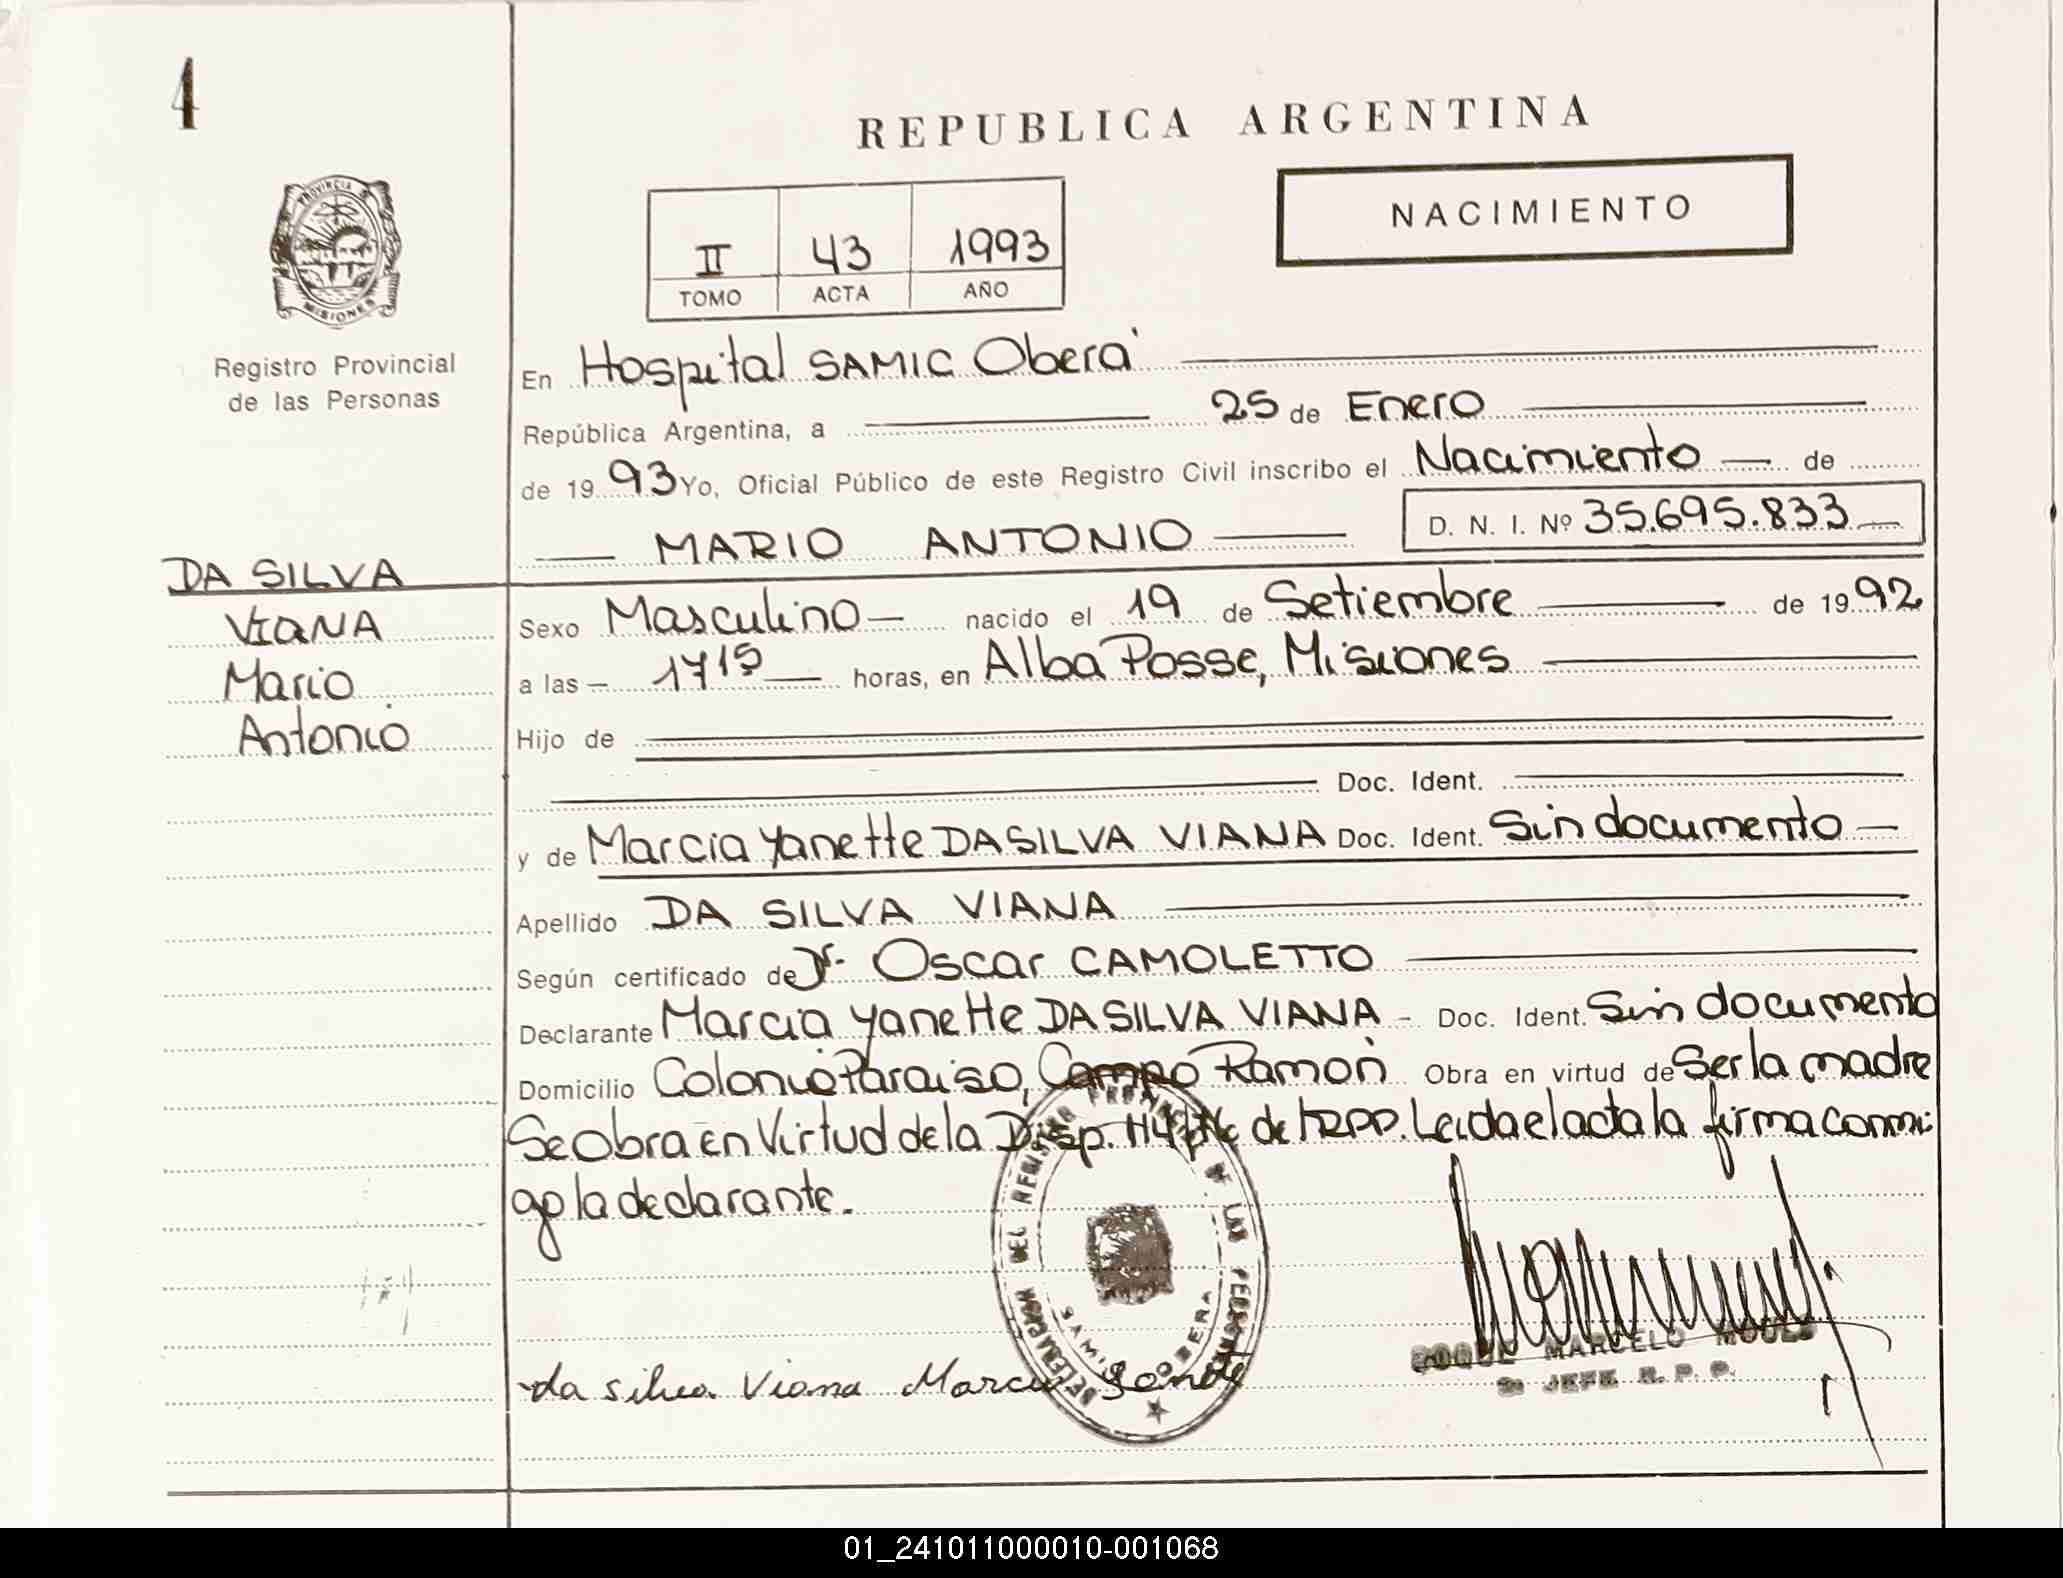 4
REPUBLICA ARGENTINA
NACIMIENTO
II 43 1993
TOMO ACTA AÑO
PROVINCIA DE
MISIONES
Registro Provincial
de las Personas
En Hospital SAMIC Oberá
República Argentina, a 25 de Enero
de 1993 Yo, Oficial Público de este Registro Civil inscribo el Nacimiento de
MARIO ANTONIO D. N. I. Nº 35.695.833
DA SILVA
VIANA
Mario
Antonio
Sexo Masculino nacido el 19 de Setiembre de 1992
a las 1715 horas, en Alba Posse, Misiones
Hijo de
Doc. Ident.
y de Marcia Yanette DA SILVA VIANA Doc. Ident. Sin documento
Apellido DA SILVA VIANA
Según certificado de Dr. Oscar CAMOLETTO
Declarante Marcia Yanette DA SILVA VIANA - Doc. Ident. Sin documento
Domicilio Colonia Paraiso, Campo Ramón Obra en virtud de Ser la madre
Se Obra en Virtud de la Disp. de RPP. Leida el acta la firma conmi
go la declarante.
DELEGACION DEL REGISTRO PROVINCIAL DE LAS PERSONAS
OBERA
da silva Viana Marcia
ROQUE MARCELO
JEFE R. P. P.
01_241011000010-001068